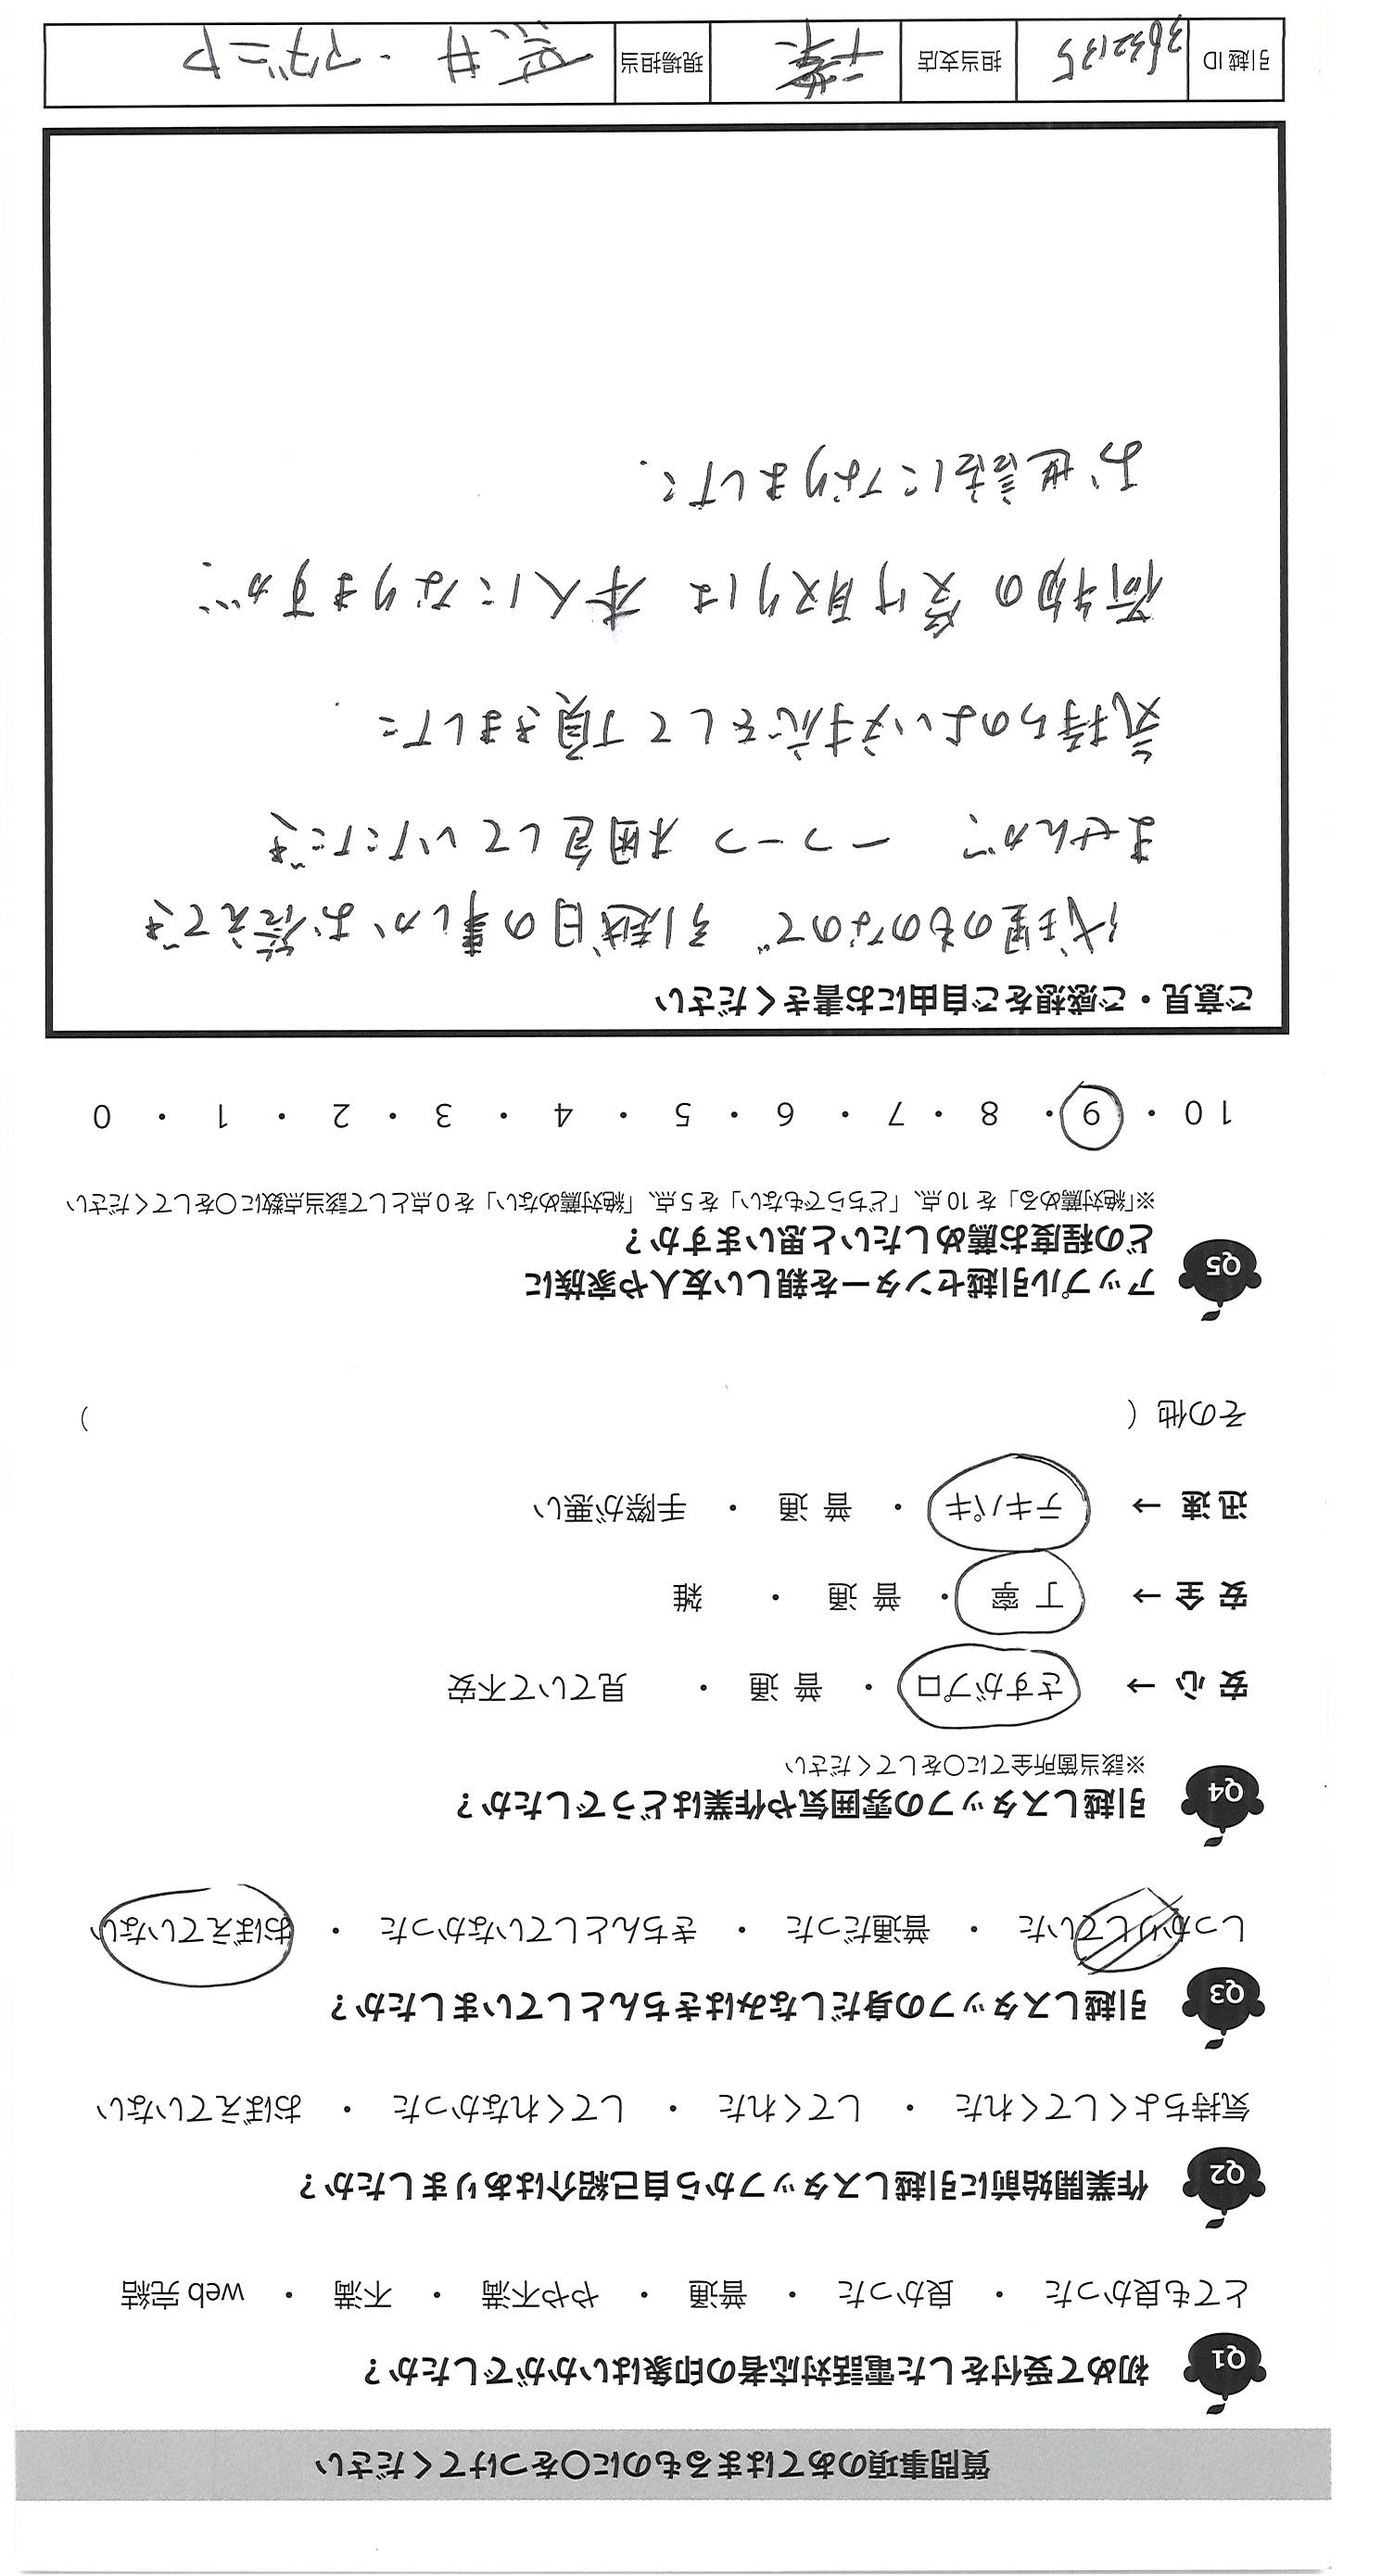 質問事項のあてはまるものに〇をつけてください
Q1 初めて受付をした電話対応者の印象はいかがでしたか？
とても良かった ・ 良かった ・ 普通 ・ やや不満 ・ 不満 ・ web 完結
Q2 作業開始前に引越しスタッフから自己紹介はありましたか？
気持ちよくしてくれた ・ してくれた ・ してくれなかった ・ おぼえていない
Q3 引越しスタッフの身だしなみはきちんとしていましたか？
しっかりしていた ・ 普通だった ・ きちんとしていなかった ・ おぼえていない
Q4 引越しスタッフの雰囲気や作業はどうでしたか？
※該当箇所全てに〇をしてください
安 心 → さすがプロ ・ 普 通 ・ 見ていて不安
安 全 → 丁 寧 ・ 普 通 ・ 雑
迅 速 → テキパキ ・ 普 通 ・ 手際が悪い
その他（ ）
Q5 アップル引越センターを親しい友人や家族に
どの程度お薦めしたいと思いますか？
※「絶対薦める」を 10 点、「どちらでもない」を 5 点、「絶対薦めない」を 0 点として該当点数に〇をしてください
10 ・ 9 ・ 8 ・ 7 ・ 6 ・ 5 ・ 4 ・ 3 ・ 2 ・ 1 ・ 0
ご意見・ご感想をご自由にお書きください
代理のものなので 引越日の事しかお答えでき
ませんが、一つ一つ 梱包していただき
気持ちのよい対応をして頂きました.
荷物の受け取りは 本人になりますが…
お世話になりました.
引越 ID 3632135 担当支店 千葉 現場担当 荒井・アダニヤ